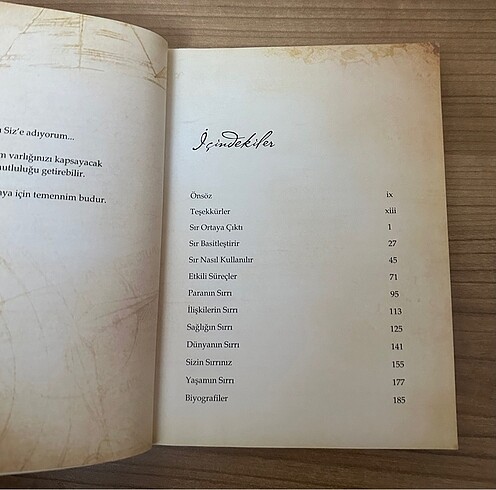 Siz'e adıyorum...
varlığınızı kapsayacak
mutluluğu getirebilir.
için temennim budur.
İçindekiler
Önsöz ix
Teşekkürler xiii
Sır Ortaya Çıktı 1
Sır Basitleştirir 27
Sır Nasıl Kullanılır 45
Etkili Süreçler 71
Paranın Sırrı 95
İlişkilerin Sırrı 113
Sağlığın Sırrı 125
Dünyanın Sırrı 141
Sizin Sırrınız 155
Yaşamın Sırrı 177
Biyografiler 185